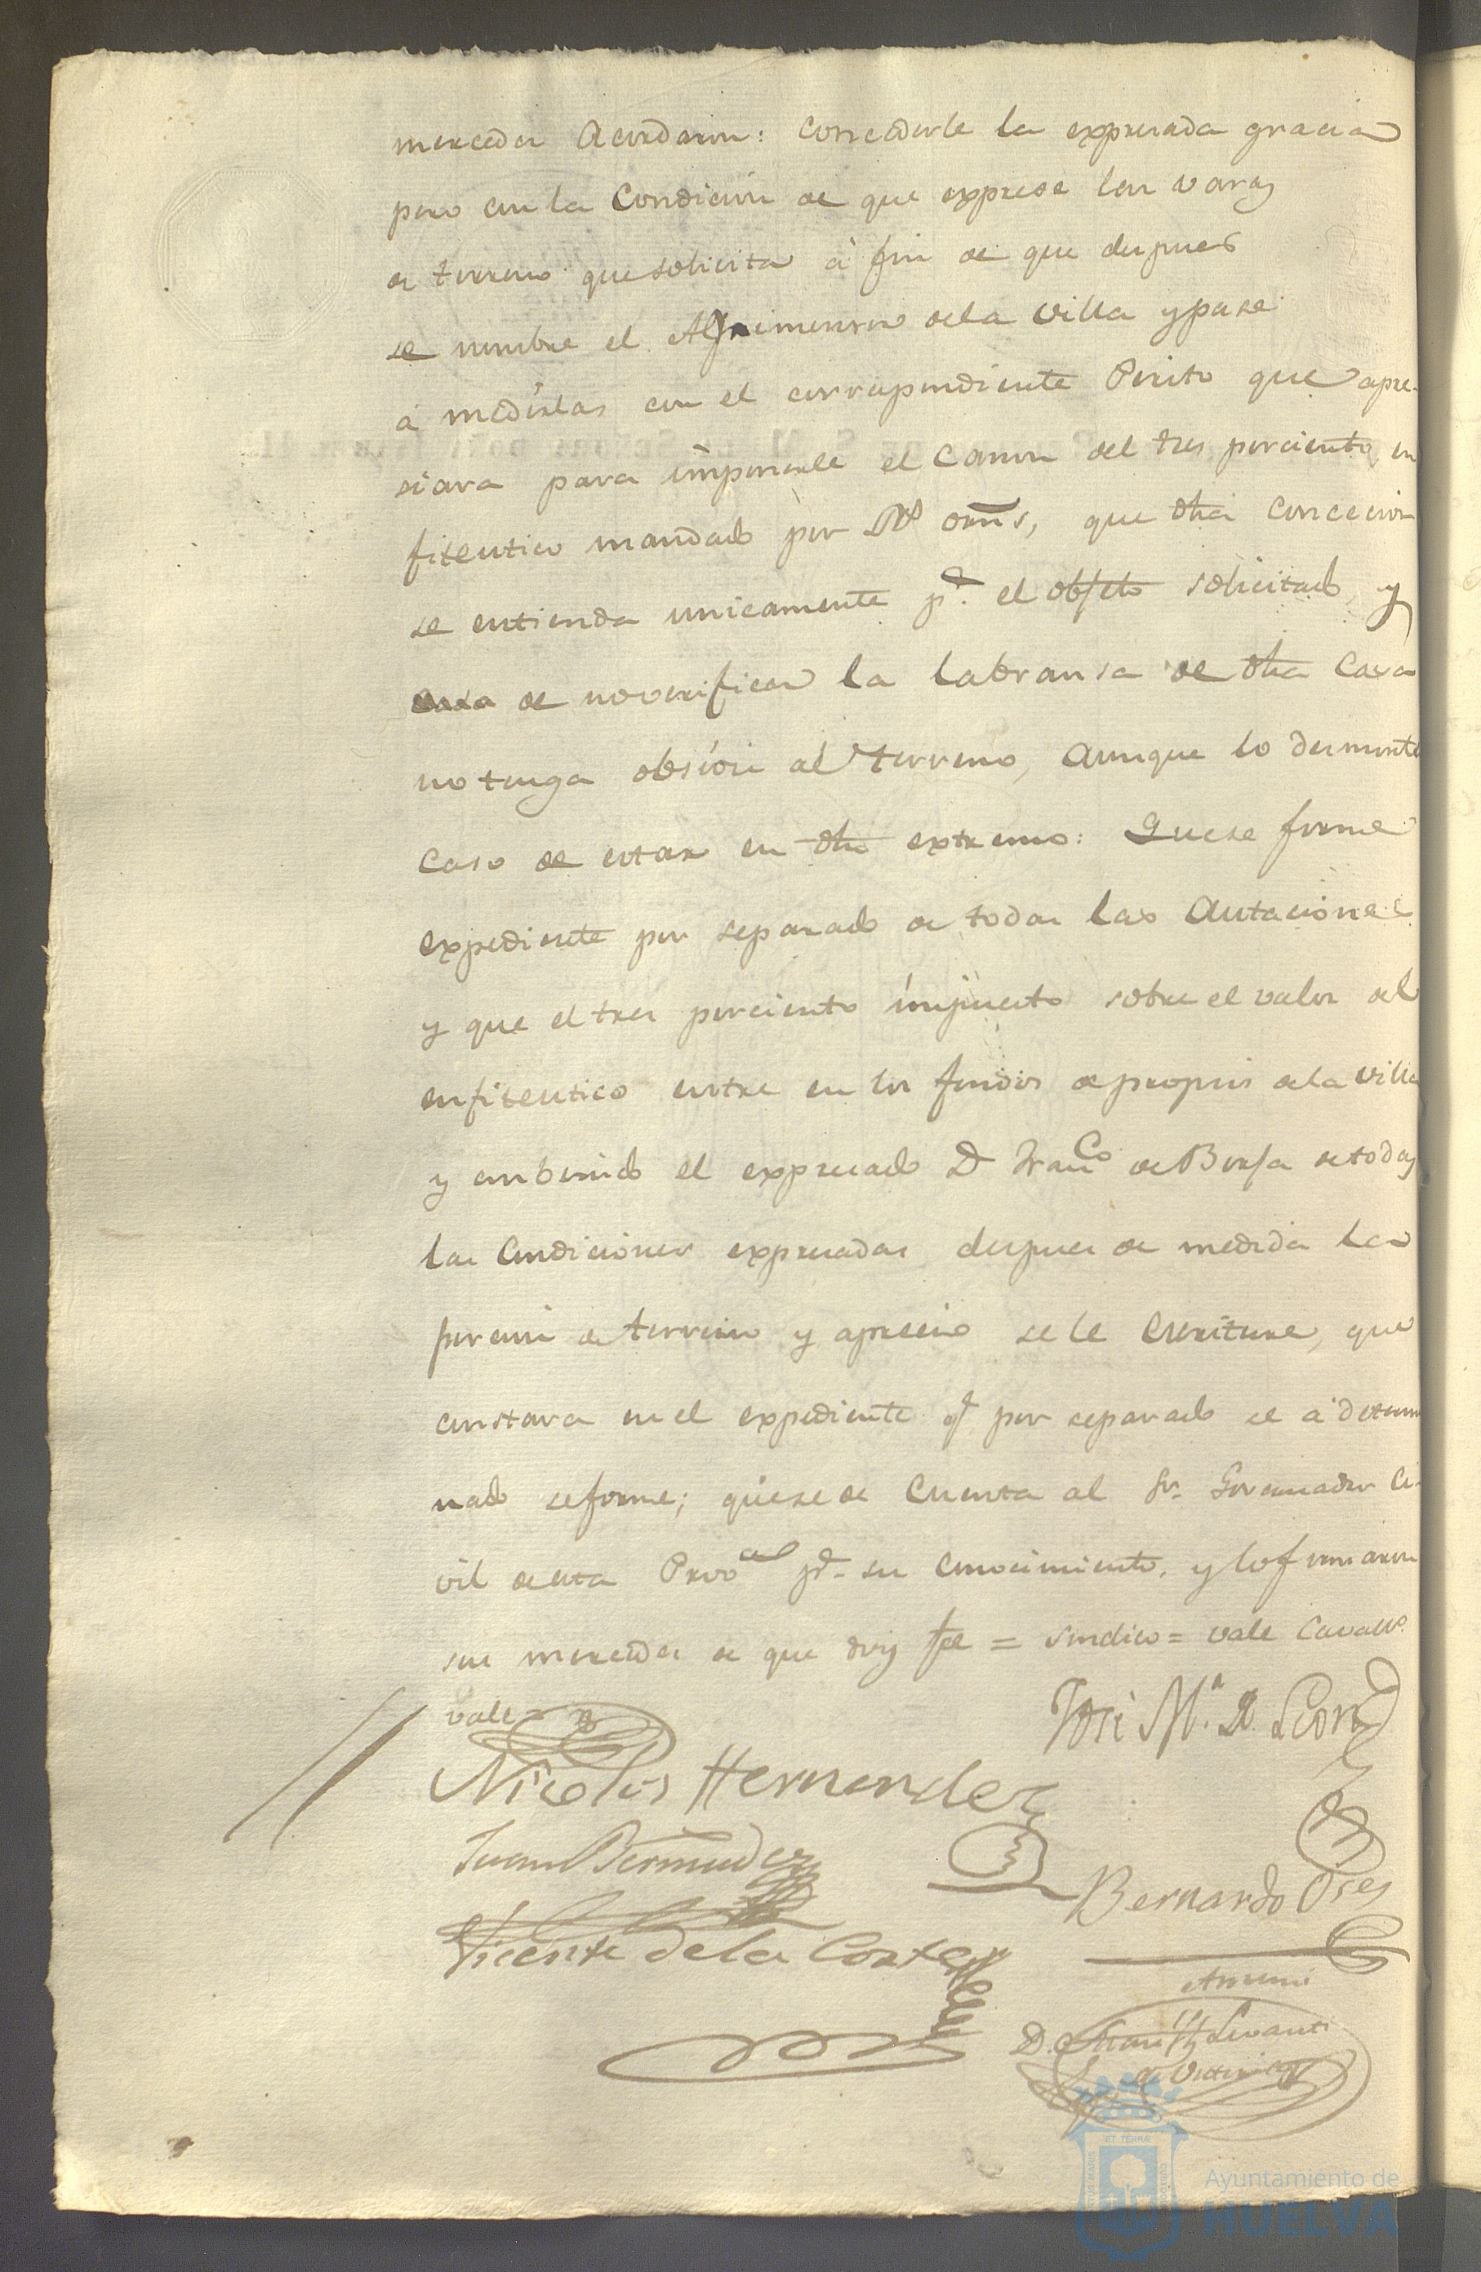 mercedes Acordaron: concederle la expresada gracia
pero con la Condicion de que exprese las varas
de terreno que solicita à fin de que despues
se nombre el Agrimensor dela Villa y pase
á medirlas con el correspondiente Perito que apre-
siara para imponerle el canon del tres porciento en
fiteutico mandado por Rs ornˢ, que dha concecion
se entienda unicamente pª el objeto solicitado, y
caso de no verificar la labransa de dha Casa
no tenga obsion al terreno, aunque lo desmonte
caso de estar en dho extremo: Que se forme
expediente por separado de todas las Autaciones
y que el tres porciento impuesto sobre el valor del
enfiteutico entre en los fondos de propios dela Villa
y conbenido el expresado D Franco de Borja de todas
las Condiciones expresadas despues de medida la
porcion de terreno y apresio se le escriture, que
constara en el expediente q por separado se á determi
nado se forme; que se de Cuenta al Sr. Governador Ci-
vil de esta Provca pª su conocimiento, y lo firmaron
sus mercedes de que doy fe = sindico = vale Cavallo
vale =
José Mª D. Leon
Nicolas Hernandez
Juan Bermudez
Bernardo Oses
Vicente dela Corte
Antemi
D. Levanti
Ayuntamiento de
HUELVA